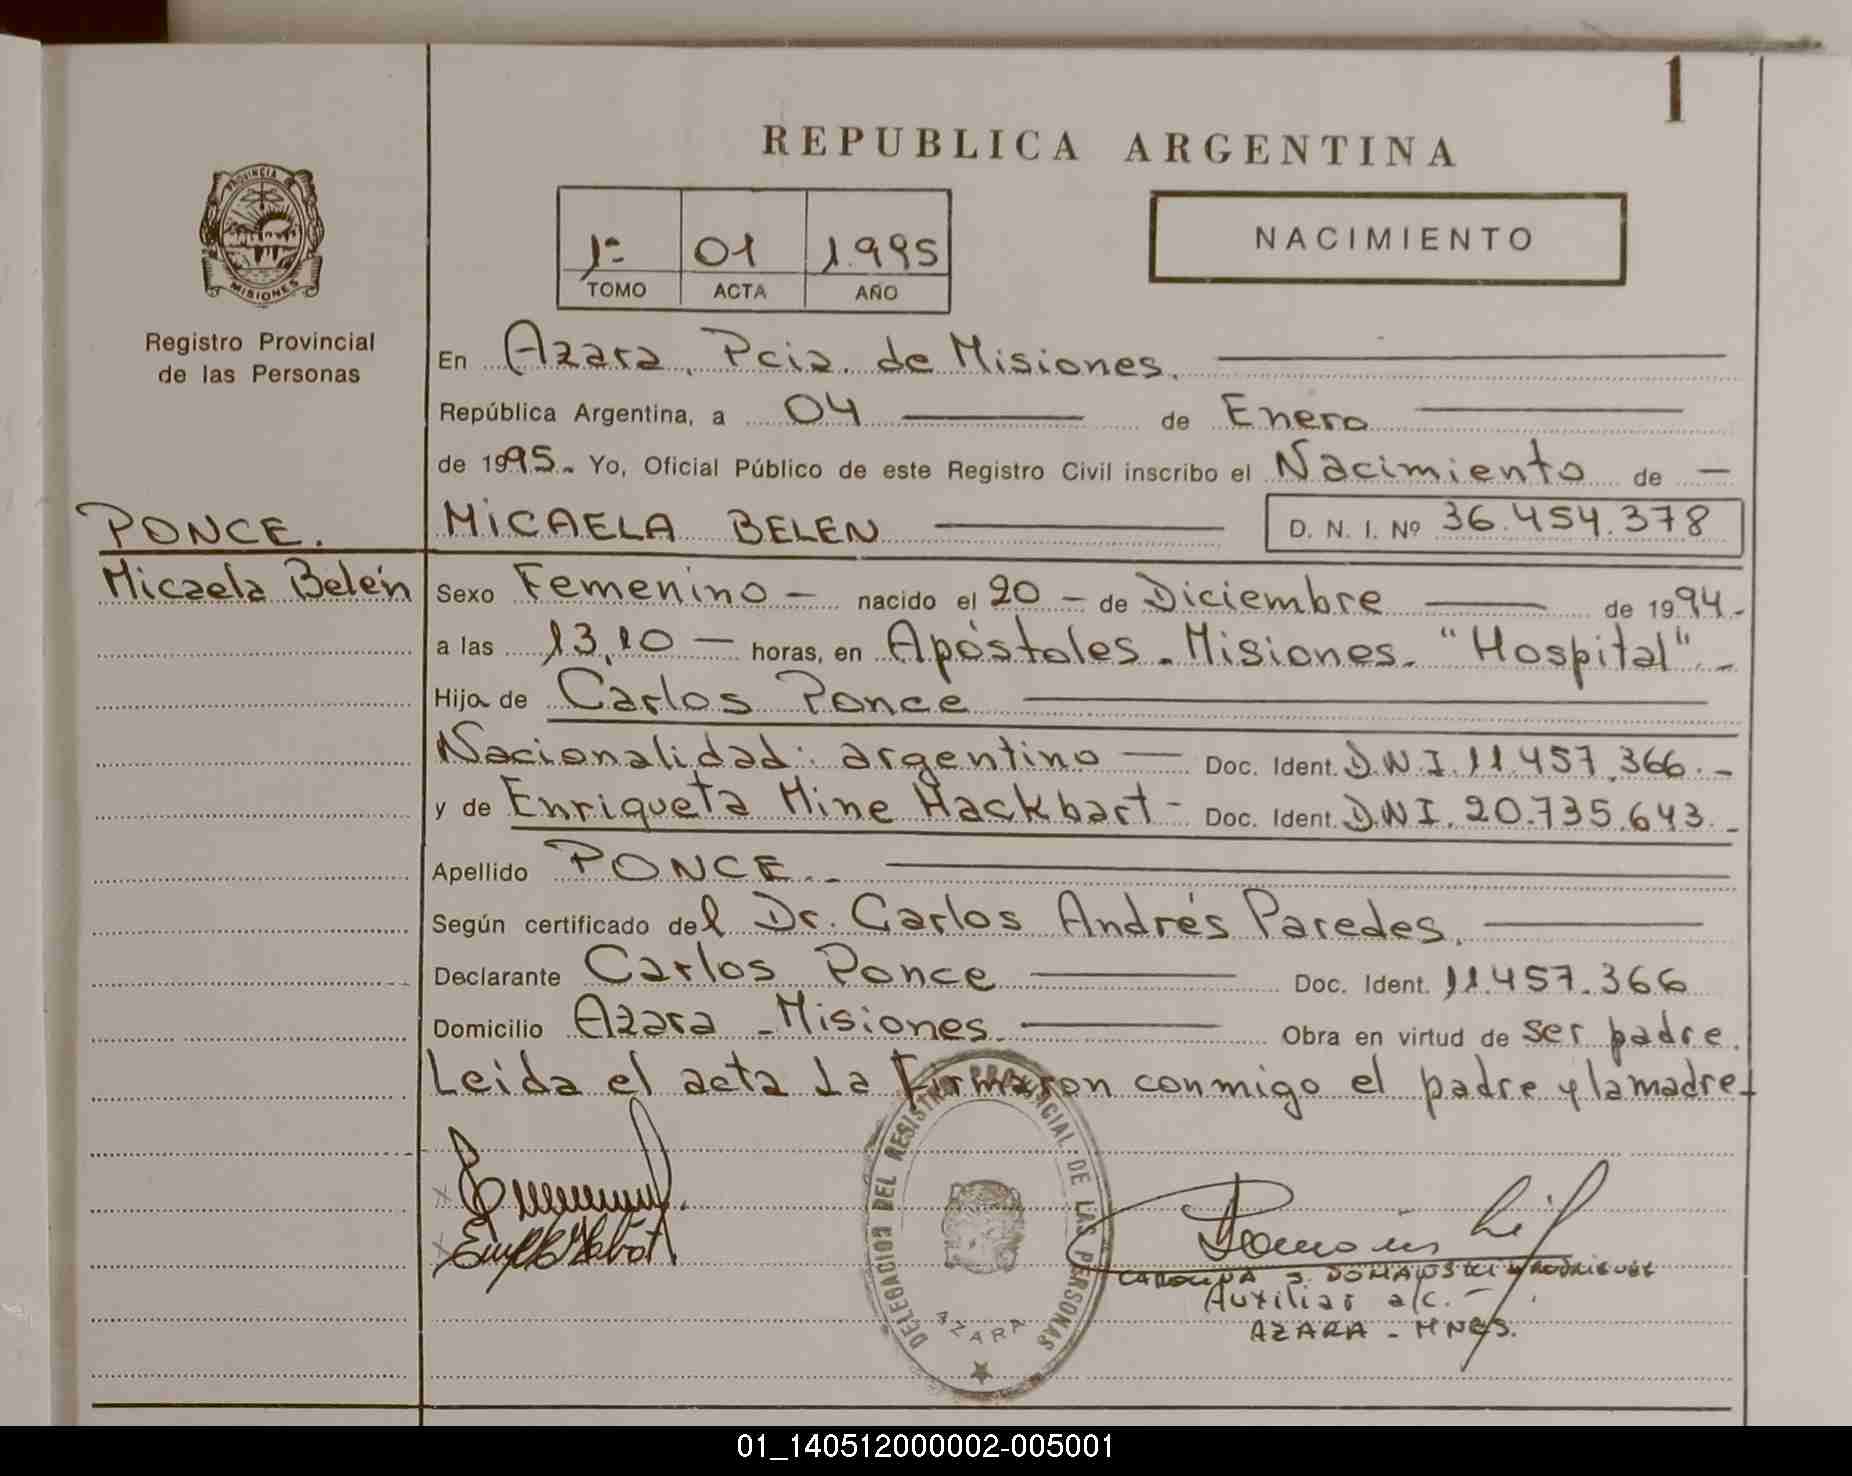 1
REPUBLICA ARGENTINA
PROVINCIA
MISIONES
1º 01 1.995
TOMO ACTA AÑO
NACIMIENTO
Registro Provincial
de las Personas
En Azara, Pcia. de Misiones.
República Argentina, a 04 de Enero
de 1995. Yo, Oficial Público de este Registro Civil inscribo el Nacimiento de
PONCE. MICAELA BELEN D. N. I. Nº 36.454.378
Micaela Belén
Sexo Femenino nacido el 20 de Diciembre de 1994.
a las 13,10 horas, en Apóstoles - Misiones. "Hospital"
Hija de Carlos Ponce
Nacionalidad: argentino Doc. Ident. D.N.I. 11.457.366.
y de Enriqueta Mine Hackbart Doc. Ident. D.N.I. 20.735.643.
Apellido PONCE.
Según certificado del Dr. Carlos Andrés Paredes.
Declarante Carlos Ponce Doc. Ident. 11.457.366
Domicilio Azara - Misiones. Obra en virtud de ser padre.
Leida el acta La Firmaron conmigo el padre y la madre
DELEGACION DEL REGISTRO PROVINCIAL DE LAS PERSONAS
AZARA
CAROLINA S. DOMANSKI RODRIGUEZ
Auxiliar a/c.
AZARA - MNES.
01_140512000002-005001